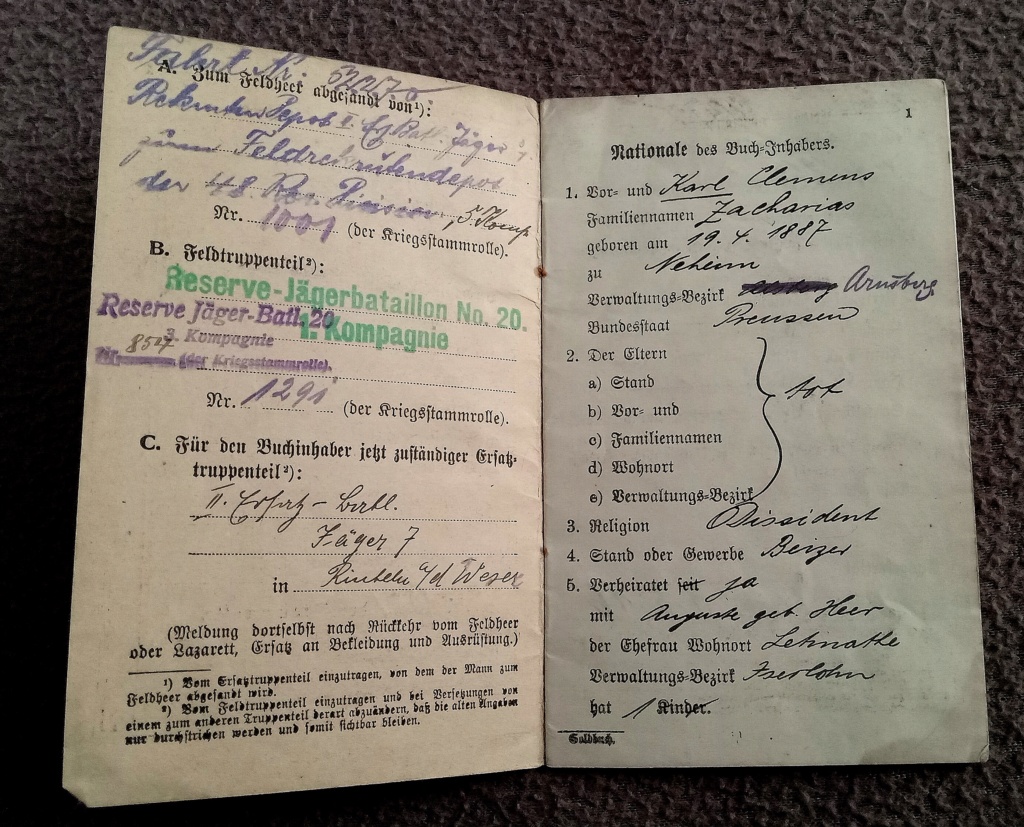 Fahrt Nr. 5227
A. Zum Feldheer abgesandt von¹):
Rekruten Depot II. Ers. Batl. Jäger 7.
zum Feldrekrutendepot
der 48. Res. Division, 5. Komp
Nr. 1001 (der Kriegsstammrolle).
B. Feldtruppenteil²):
Reserve-Jägerbataillon No. 20.
Reserve Jäger-Batl. 20
1. Kompagnie
3. Kompagnie
(der Kriegsstammrolle).
Nr. 1291 (der Kriegsstammrolle).
C. Für den Buchinhaber jetzt zuständiger Ersatz-
truppenteil²):
II. Ersatz-Batl.
Jäger 7
in Rinteln a/d Weser
(Meldung dortselbst nach Rückkehr vom Feldheer
oder Lazarett, Ersatz an Bekleidung und Ausrüstung.)
¹) Vom Ersatztruppenteil einzutragen, von dem der Mann zum
Feldheer abgesandt wird.
²) Vom Feldtruppenteil einzutragen und bei Versetzungen von
einem zum anderen Truppenteil derart abzuändern, daß die alten Angaben
nur durchstrichen werden und somit sichtbar bleiben.
1
Nationale des Buch-Inhabers.
1. Vor- und Karl Clemens
Familiennamen Zacharias
geboren am 19. 4. 1887
zu Neheim
Verwaltungs-Bezirk Arnsberg
Bundesstaat Preussen
2. Der Eltern
a) Stand
b) Vor- und tot
c) Familiennamen
d) Wohnort
e) Verwaltungs-Bezirk
3. Religion Dissident
4. Stand oder Gewerbe Beizer
5. Verheiratet seit ja
mit Auguste geb. Heer
der Ehefrau Wohnort Letmathe
Verwaltungs-Bezirk Iserlohn
hat 1 Kinder.
Soldbuch.